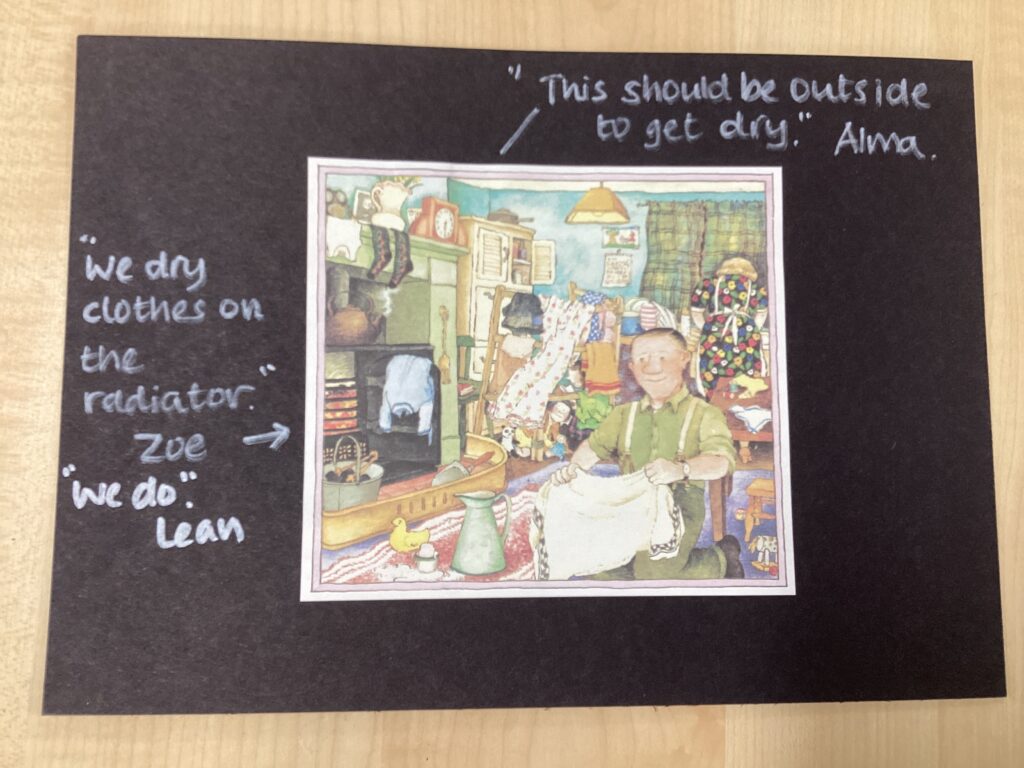 " This should be outside
to get dry." Alma.
"We dry
clothes on
the
radiator."
Zoe
"We do".
Lean